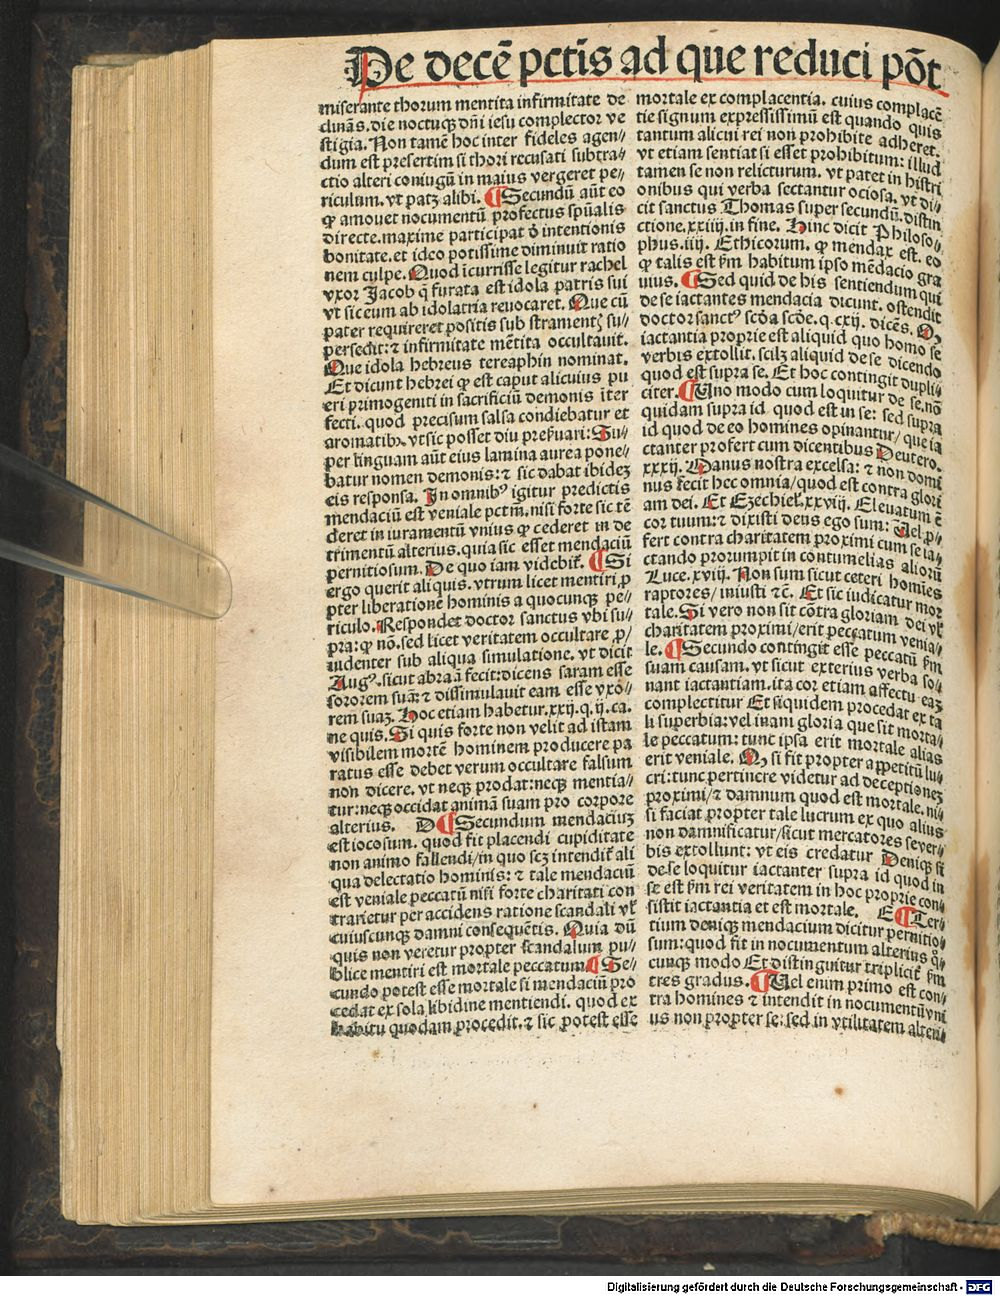 De decē pctīs ad que reduci pōt
miserante thorum mentita infirmitate de
clinās. die noctuqꝫ dn̄i iesu complector ve
stigia. Non tamē hoc inter fideles agen⸗
dum est presertim si thori recusati subtra⸗
ctio alteri coniugū in maius vergeret pe⸗
riculum. vt patꝫ alibi. ¶ Secundū aūt eo
ꝙ amouet nocumentū profectus spūalis
directe. maxime participat ō intentionis
bonitate. et ideo potissime diminuit ratio
nem culpe. Quod īcurrisse legitur rachel
vxor Jacob q̄ furata est idola patris sui
vt sic eum ab idolatria reuocaret. Que cū
pater requireret positis sub stramentꝭ su⸗
persedit: ⁊ infirmitate mētita occultauit.
Que idola hebreus tereaphin nominat.
Et dicunt hebrei ꝙ est caput alicuius pu
eri primogeniti in sacrificiū demonis īter
fecti. quod precisum salsa condiebatur et
aromatibꝫ. vt sic posset diu preẛuari: Su⸗
per linguam aūt eius lamina aurea pone⸗
batur nomen demonis: ⁊ sic dabat ibideꝫ
eis responsa. In omnibꝰ igitur predictis
mendaciū est veniale pctm̄. nisi forte sic tē
deret in iuramentū vnius ꝙ cederet in de
trimentū alterius. quia sic esset mendaciū
pernitiosum. De quo iam videbit̄. ¶ Si
ergo querit aliquis. vtrum licet mentiri ꝓ
pter liberationē hominis a quocunqꝫ pe⸗
riculo. Respondet doctor sanctus vbi su⸗
pra: ꝙ nō. sed licet veritatem occultare ꝓ⸗
uidenter sub aliqua simulatione. vt dicit
Augꝰ. sicut abraā fecit: dicens saram esse
sororem suā: ⁊ dissimulauit eam esse vxo⸗
rem suaꝫ. Hoc etiam habetur. xxij. q. ij. ca.
ne quis. Si quis forte non velit ad istam
visibilem mortē hominem producere pa
ratus esse debet verum occultare falsum
non dicere. vt neqꝫ prodat: neqꝫ mentia⸗
tur: neqꝫ occidat animā suam pro corpore
alterius. D ¶ Secundum mendaciuꝫ
est iocosum. quod fit placendi cupiditate
non animo fallendi/ in quo scꝫ intendit̄ ali
qua delectatio hominis: ⁊ tale mendaciū
est veniale peccatū nisi forte charitati con
trarietur per accidens ratione scandali vl̄
cuiuscunqꝫ damni consequētis. Quia dū
quis non veretur propter scandalum pu⸗
blice mentiri est mortale peccatum ¶ Se⸗
cundo potest esse mortale si mendaciū pro
cedat ex sola libidine mentiendi. quod ex
habitu quodam ꝓcedit. ⁊ sic potest esse
mortale ex complacentia. cuius complacē
tie signum expressissimū est quando quis
tantum alicui rei non prohibite adheret.
vt etiam sentiat si esset prohibitum: illud
tamen se non relicturum. vt patet in histri
onibus qui verba sectantur ociosa. vt di⸗
cit sanctus Thomas super secundū. distin
ctione. xxiiij. in fine. Hinc dicit Philoso⸗
phus. iiij. Ethicorum. ꝙ mendax est. eo
ꝙ talis est ẜm habitum ipso mēdacio gra
uius. ¶ Sed quid de his sentiendum qui
de se iactantes mendacia dicunt. ostendit
doctor sanctꝰ scd̄a scd̄e. q. cxij. dicēs. Qꝫ
iactantia proprie est aliquid quo homo se
verbis extollit. scilꝫ aliquid de se dicendo
quod est supra se. Et hoc contingit dupli⸗
citer. ¶ Uno modo cum loquitur de se. nō
quidam supra id quod est in se: sed supra
id quod de eo homines opinantur/ que ia
ctanter profert cum dicentibus Deutero.
xxxij. Manus nostra excelsa: ⁊ non domi
nus fecit hec omnia/ quod est contra glori
am dei. Et Ezechiel. xxviij. Eleuatum ē
cor tuum: ⁊ dixisti deus ego sum: Uel ꝓ⸗
fert contra charitatem proximi cum se ia⸗
ctando prorumpit in contumelias aliorū
Luce. xviij. Non sum sicut ceteri homīes
raptores/ iniusti ⁊c̄. Et sic iudicatur mor
tale. Si vero non sit cōtra gloriam dei vl̄
charitatem proximi/ erit peccatum venia⸗
le. ¶ Secundo contingit esse peccatū ẜm
suam causam. vt sicut exterius verba so⸗
nant iactantiam. ita cor etiam affectu eaꝫ
complectitur Et siquidem procedat ex ta
li superbia: vel inani gloria que sit morta⸗
le peccatum: tunc ipsa erit mortale alias
erit veniale. Qꝫ si fit propter appetitū lu⸗
cri: tunc pertinere videtur ad deceptioneꝫ
proximi/ ⁊ damnum quod est mortale. ni⸗
si faciat propter tale lucrum ex quo alius
non damnificatur/ sicut mercatores se ver⸗
bis extollunt: vt eis credatur Deniqꝫ si
de se loquitur iactanter supra id quod in
se est ẜm rei veritatem in hoc proprie con⸗
sistit iactantia et est mortale. E ¶ Ter⸗
tium deniqꝫ mendacium dicitur pernitio⸗
sum: quod fit in nocumentum alterius q̊⸗
cunqꝫ modo Et distinguitur triplicit̄ ẜm
tres gradus. ¶ Uel enim primo est con⸗
tra homines ⁊ intendit in nocumentū vni
us non propter se: sed in vtilitatem alteri⸗
Digitalisierung gefördert durch die Deutsche Forschungsgemeinschaft - DFG